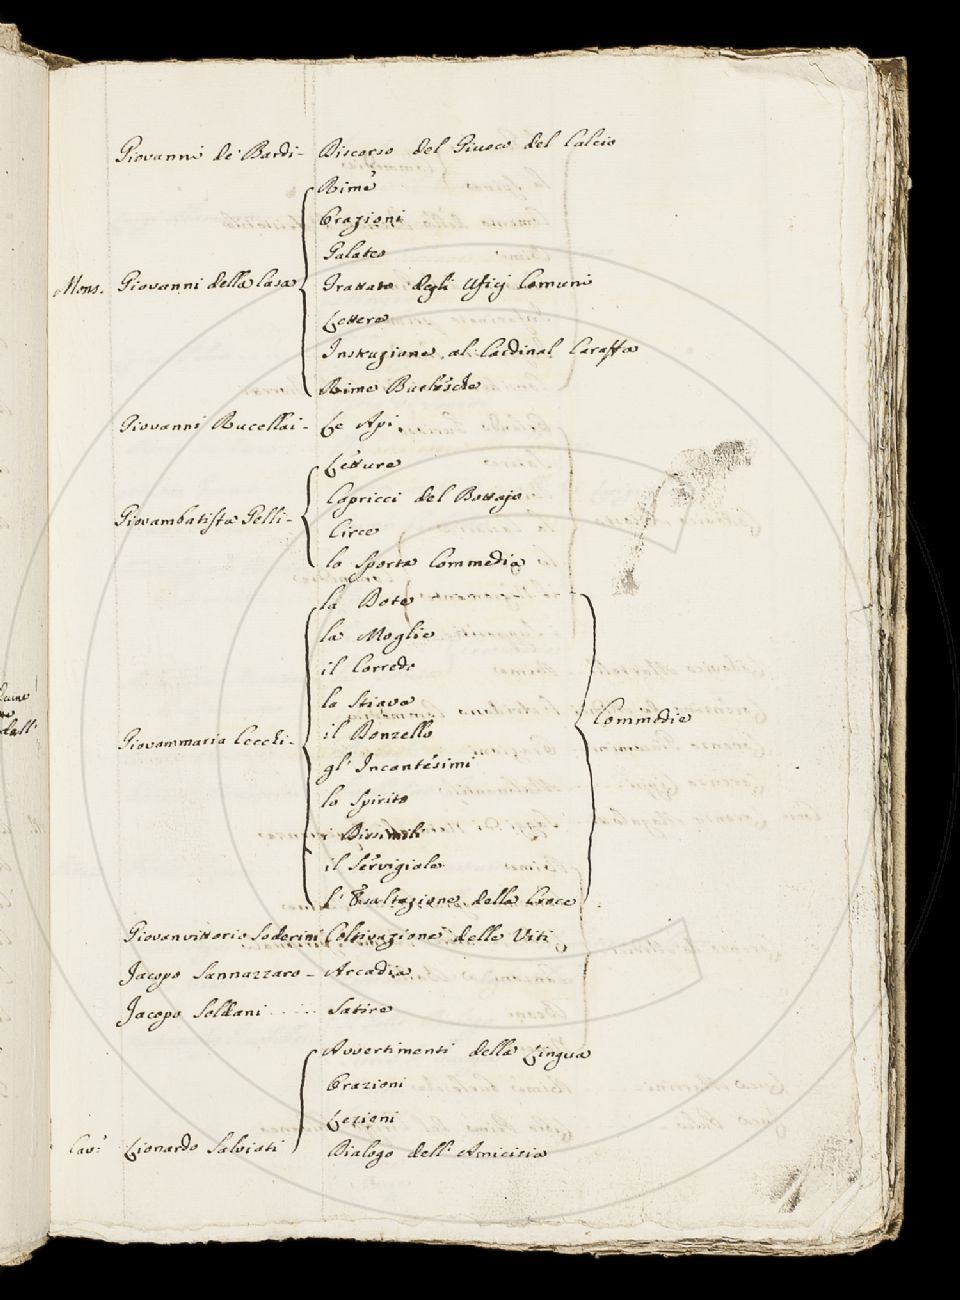 Giovanni de' Bardi - Discorso del Giuoco del Calcio
Rime
Orazioni
Galateo
Mons. Giovanni della Casa Trattato degli Ufici Comuni
Lettere
Instruzione al Cardinal Caraffa
Rime Burlesche
Giovanni Rucellai - Le Api
Letture
Capricci del Bottajo
Giovambatista Gelli - Circe
la Sporta Commedia
la Dote
la Moglie
il Corredo
la Stiava
il Donzello
Giovammaria Cecchi - Commedie
gl' Incantesimi
lo Spirito
i Dissimili
il Servigiale
l' Esaltazione della Croce
Giovanvittorio Soderini Coltivazione delle Viti
Jacopo Sannazzaro - Arcadia
Jacopo Soldani ..... Satire
Avvertimenti della Lingua
Orazioni
Lezioni
Cav: Lionardo Salviati Dialogo dell' Amicizia